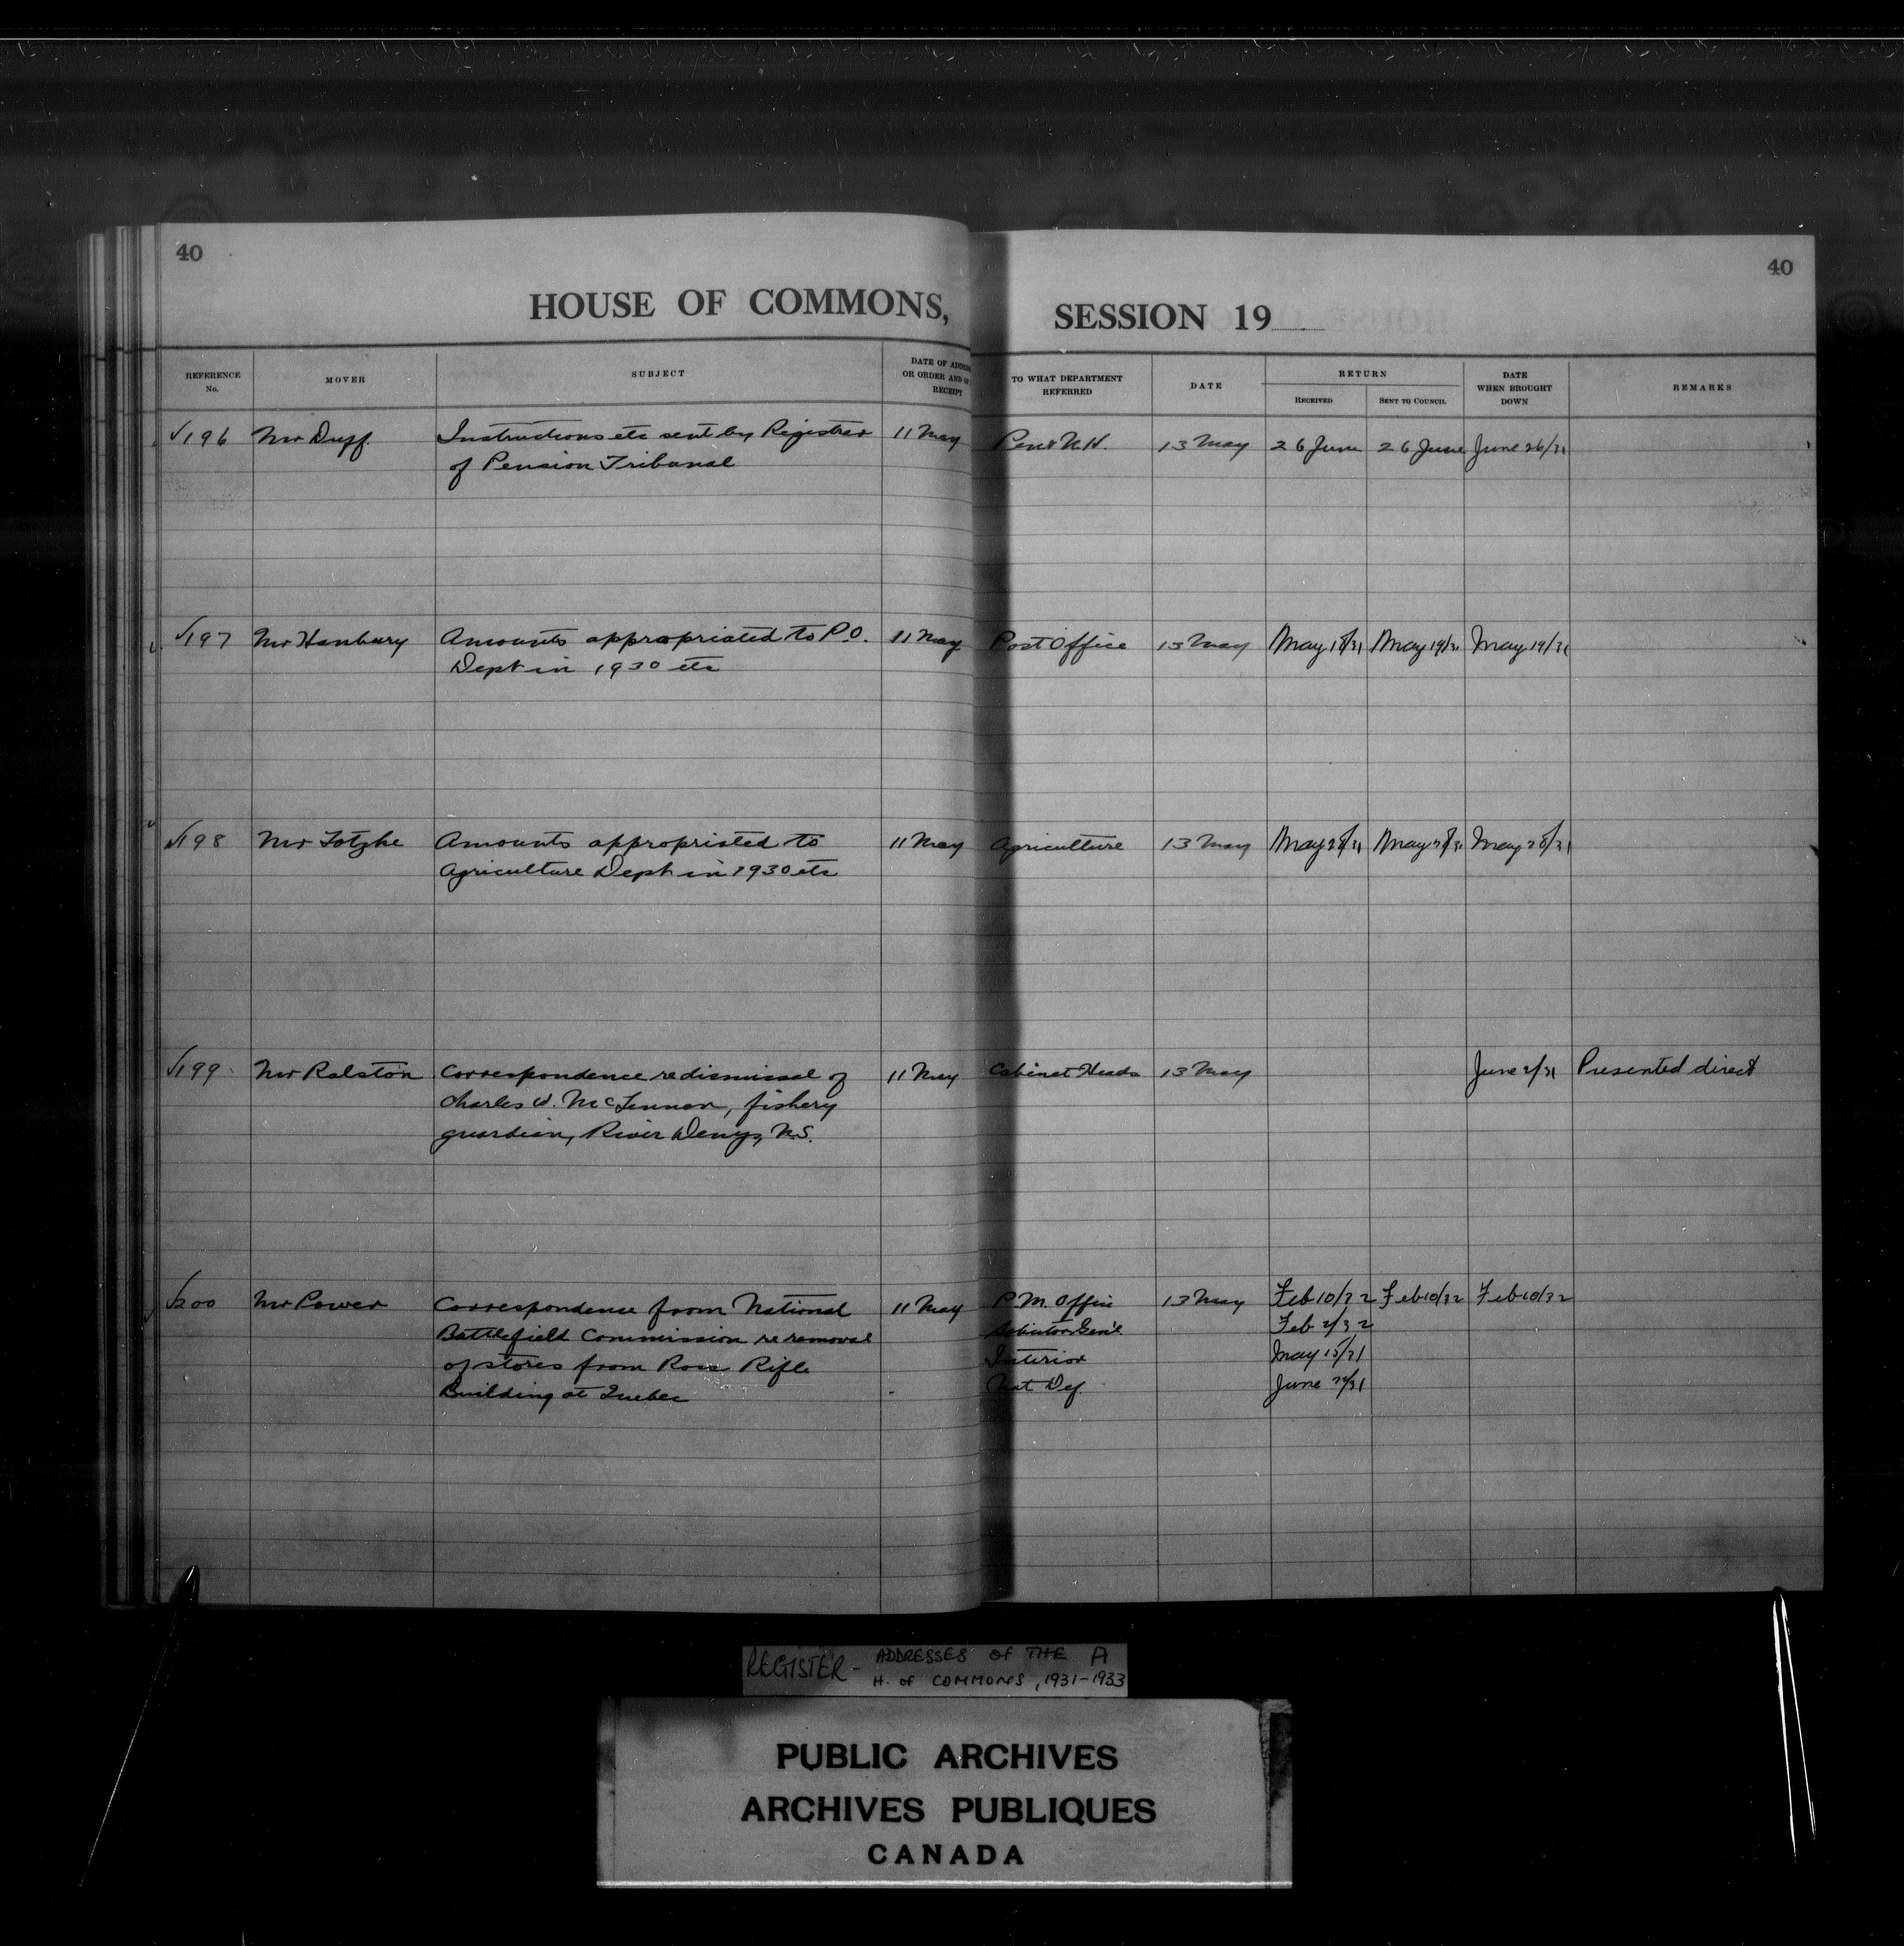 40
40
HOUSE OF COMMONS,
SESSION 19
REFERENCE No.
MOVER
SUBJECT
DATE OF ADDRESS OR ORDER AND OF RECEIPT
TO WHAT DEPARTMENT REFERRED
DATE
RETURN
RECEIVED
SENT TO COUNCIL
DATE WHEN BROUGHT DOWN
REMARKS
√196 Mr Duff Instructions etc sent by Registrar 11 May Pen & N.H. 13 May 26 June 26 June June 26/31
of Pension Tribunal
√197 Mr Hanbury Amounts appropriated to P.O. 11 May Post Office 13 May May 18/31 May 19/31 May 19/31
Dept in 1930 etc
√198 Mr Totzke Amounts appropriated to 11 May Agriculture 13 May May 28/31 May 28/31 May 28/31
Agriculture Dept in 1930 etc
√199 Mr Ralston Correspondence re dismissal of 11 May Cabinet Heads 13 May June 2/31 Presented direct
Charles W. McLennan, fishery
guardian, River Denys, N.S.
√200 Mr Power Correspondence from National 11 May P.M. Office 13 May Feb 10/32 Feb 10/32 Feb 10/32
Battlefield Commission re removal Solicitor Gen'l Feb 2/32
of stores from Ross Rifle Interior May 15/31
Building at Quebec Nat Def. June
REGISTER - ADDRESSES OF THE A
H. of COMMONS, 1931-1933
PUBLIC ARCHIVES
ARCHIVES PUBLIQUES
CANADA